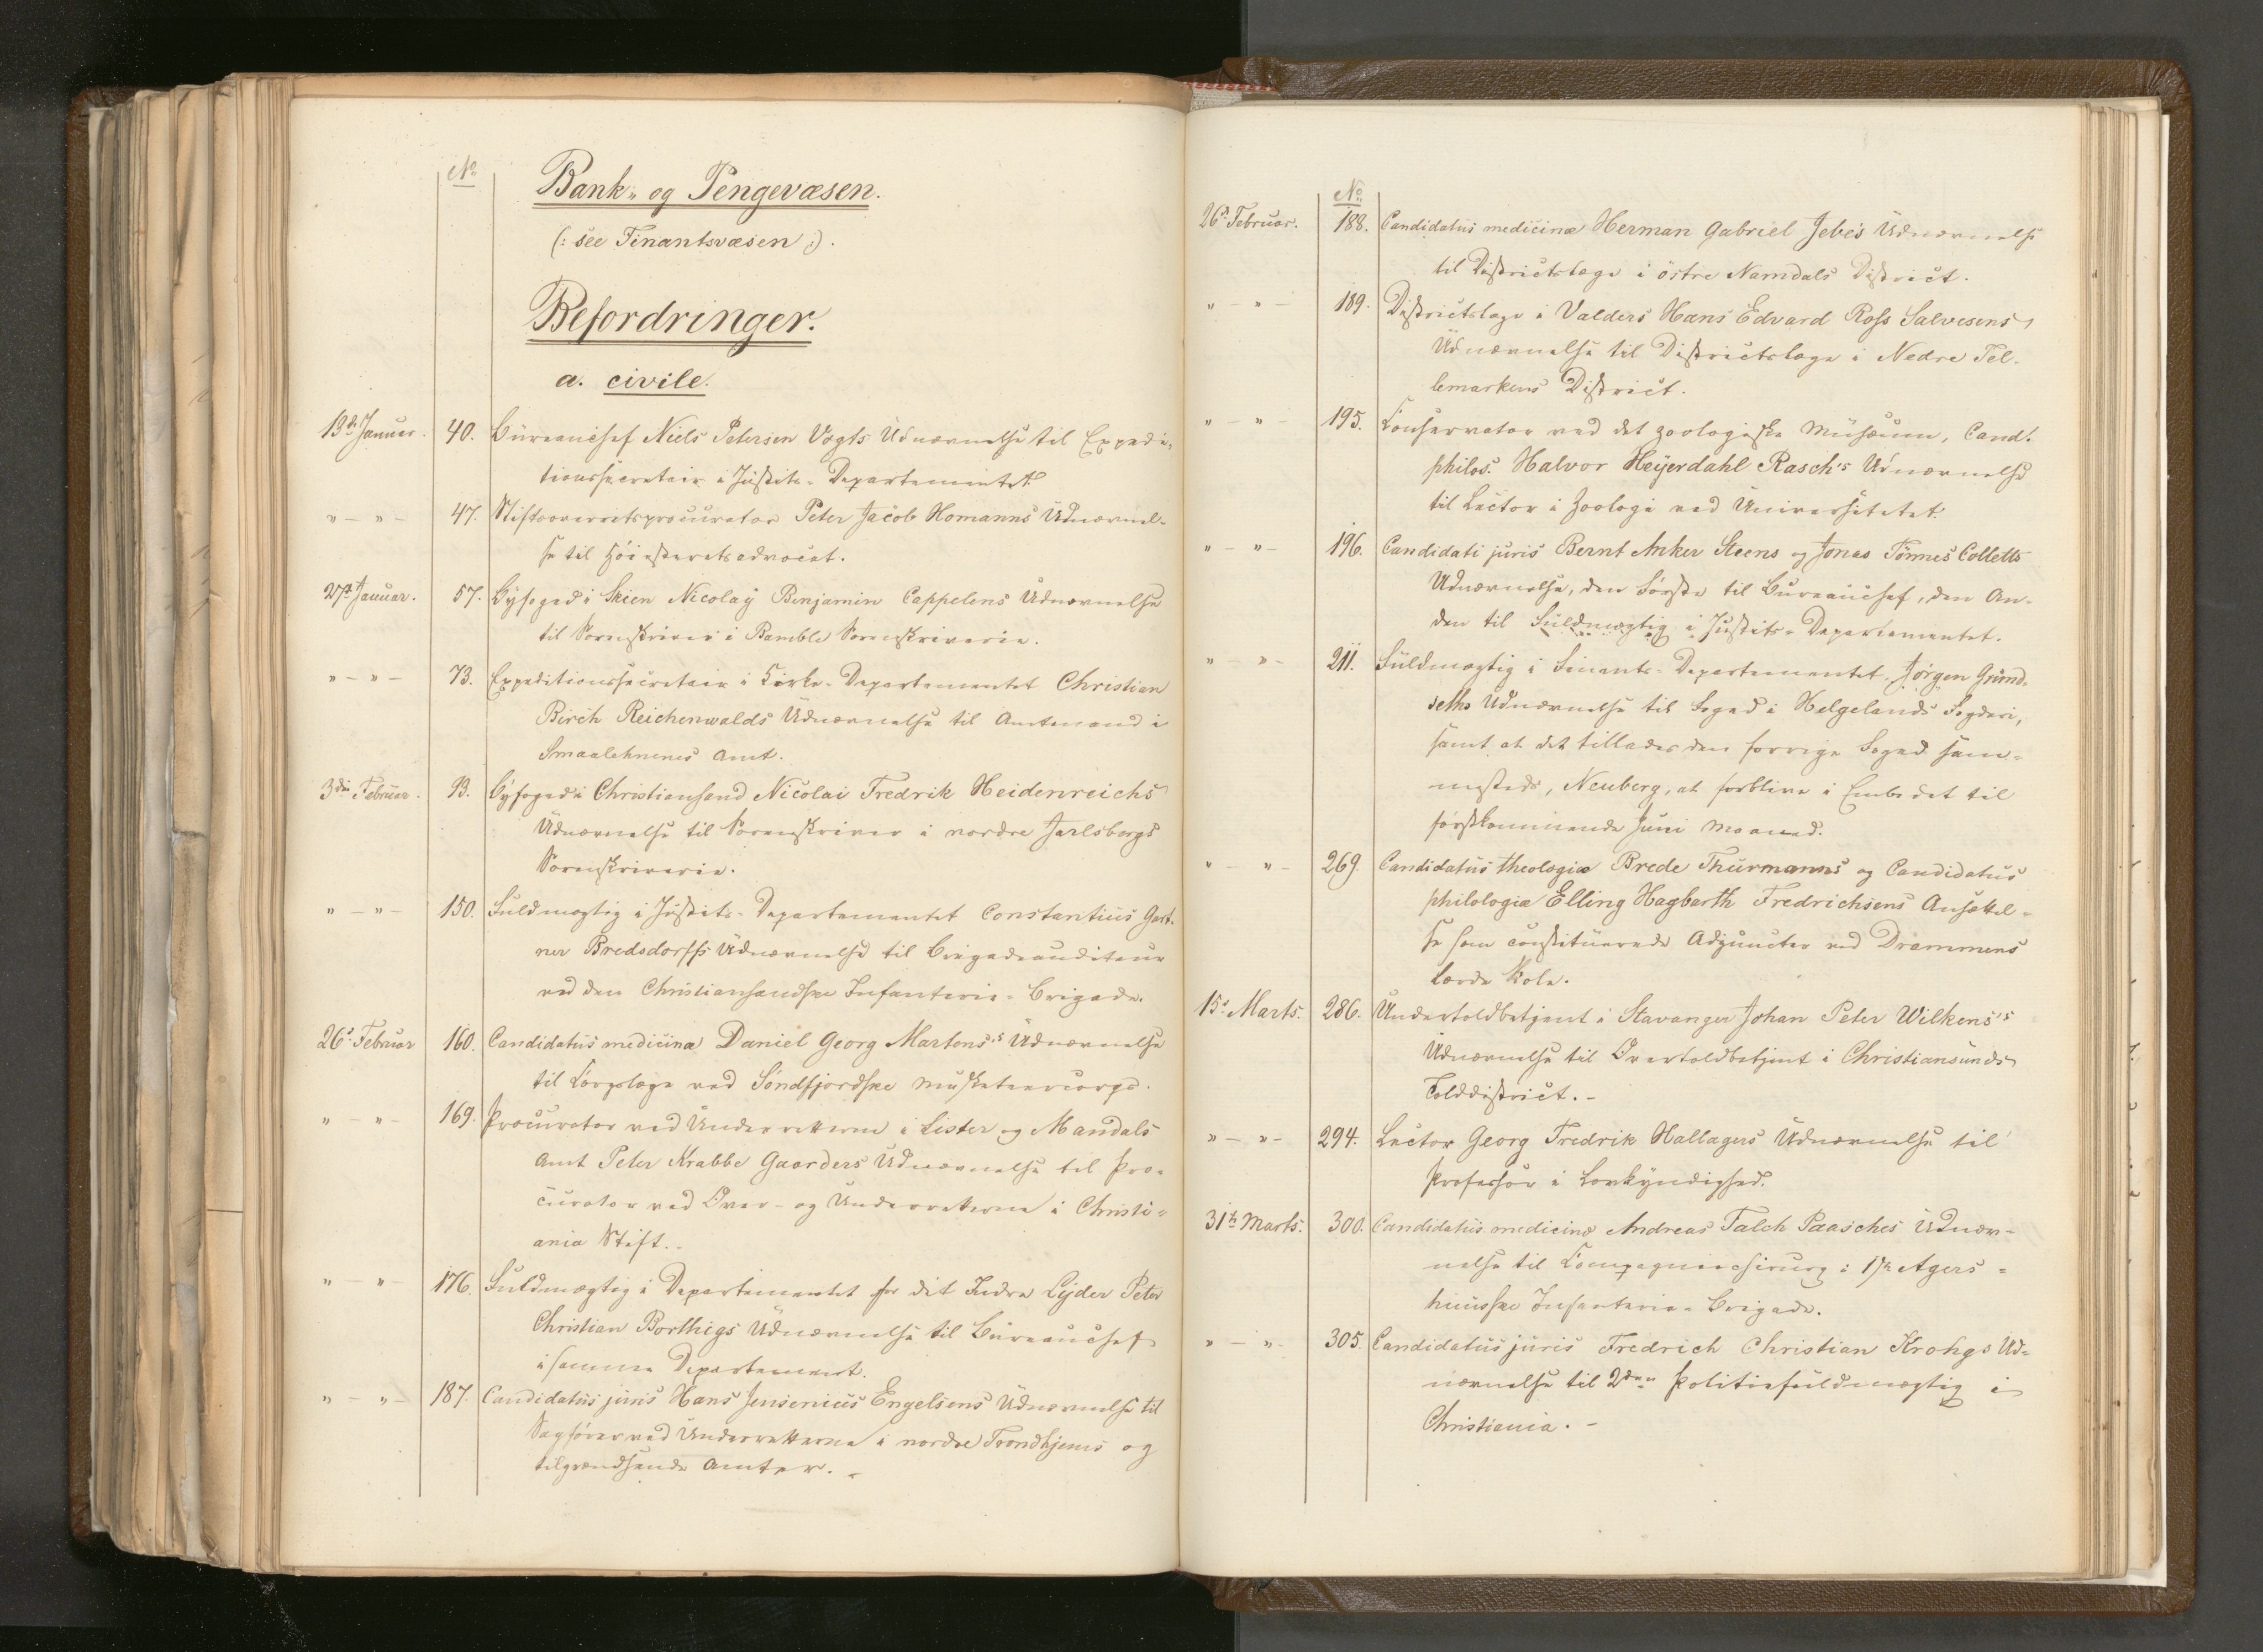 No
Bank- og Pengevæsen.
(: see Finantsvæsen :).
Befordringer.
a. civile.
13de Januar. 40. Büreauchef Niels Petersen Vogts Udnævnelse til Expedi-
tionssecretair i Justits-Departementet.
" — " — 47. Stiftsoverretsprocurator Peter Jacob Homanns Udnævnel-
se til Höiesteretsadvocat.
27de Januar. 57. Byfoged i Skien Nicolay Benjamin Cappelens Udnævnelse
til Sorenskriver i Bamble Sorenskriverie.
" — " — 73. Expeditionssecretair i Kirke-Departementet Christian
Birch Reichenwalds Udnævnelse til Amtmand i
Smaalehnenes Amt.
3die Februar. 93. Byfoged i Christiansand Nicolai Fredrik Heidenreichs
Udnævnelse til Sorenskriver i nordre Jarlsbergs
Sorenskriverie.
" — " — 150. Fuldmægtig i Justits-Departementet Constantius Gart-
ner Bredsdorffs Udnævnelse til Brigadeauditeur
ved den Christiansandske Infanterie-Brigade.
26de Februar 160. Candidatus medicinæ Daniel Georg Martens's Udnævnelse
til Corpslæge ved Söndfjordske Musketeercorps.
" — " — 169. Procurator ved Underretterne i Lister og Mandals
Amt Peter Krabbe Gaarders Udnævnelse til Pro-
curator ved Over- og Underretterne i Christi-
ania Stift.
" — " — 176. Fuldmægtig i Departementet for det Indre Lyder Peter
Christian Borthigs Udnævnelse til Bureauchef
i samme Departement.
" — " — 187. Candidatus juris Hans Jensenius Engelsens Udnævnelse til
Sagförer ved Underretterne i nordre Trondhjems og
tilgrændsende Amter.
No
26de Februar. 188. Candidatus medicinæ Herman Gabriel Jebe's Udnævnelse
til Districtslæge i östre Namdals District.
" — " — 189. Districtslæge i Valders Hans Edvard Ross Salvesens
Udnævnelse til Districtslæge i Nedre Tel-
lemarkens District.
" — " — 195. Conservator ved det zoologiske Musæum, Cand.
philos. Halvor Heyerdahl Rasch's Udnævnelse
til Lector i Zoologi ved Universitetet.
" — " — 196. Candidati juris Bernt Anker Steens og Jonas Tönnes Colletts
Udnævnelse, den Förste til Bureauchef, den An-
den til Fuldmægtig i Justits-Departementet.
" — " — 211. Fuldmægtig i Finants-Departementet Jörgen Grund-
seths Udnævnelse til Foged i Helgelands Fogderi,
samt at det tillades den forrige Foged sam-
mesteds, Neuberg, at forblive i Embedet til
förstkommende Juni Maaned.
" — " — 269. Candidatus theologiæ Brede Thurmanns og Candidatus
philologiæ Elling Hagbarth Fredrichsens Ansættel-
se som constituerede Adjuncter ved Drammens
lærde Skole.
15de Marts. 286. Undertoldbetjent i Stavanger Johan Peter Wilkens's
Udnævnelse til Overtoldbetjent i Christiansunds
Tolddistrict. -
" — " — 294. Lector Georg Fredrik Hallagers Udnævnelse til
Professor i Lovkyndighed.
31te Marts. 300. Candidatus medicinæ Andreas Falch Paasches Udnæv-
nelse til Compagniechirurg i 1ste Agers-
huusske Infanterie-Brigade.
" — " — 305. Candidatus juris Fredrich Christian Krohgs Ud-
nævnelse til 2den Politiefuldmægtig i
Christiania. -